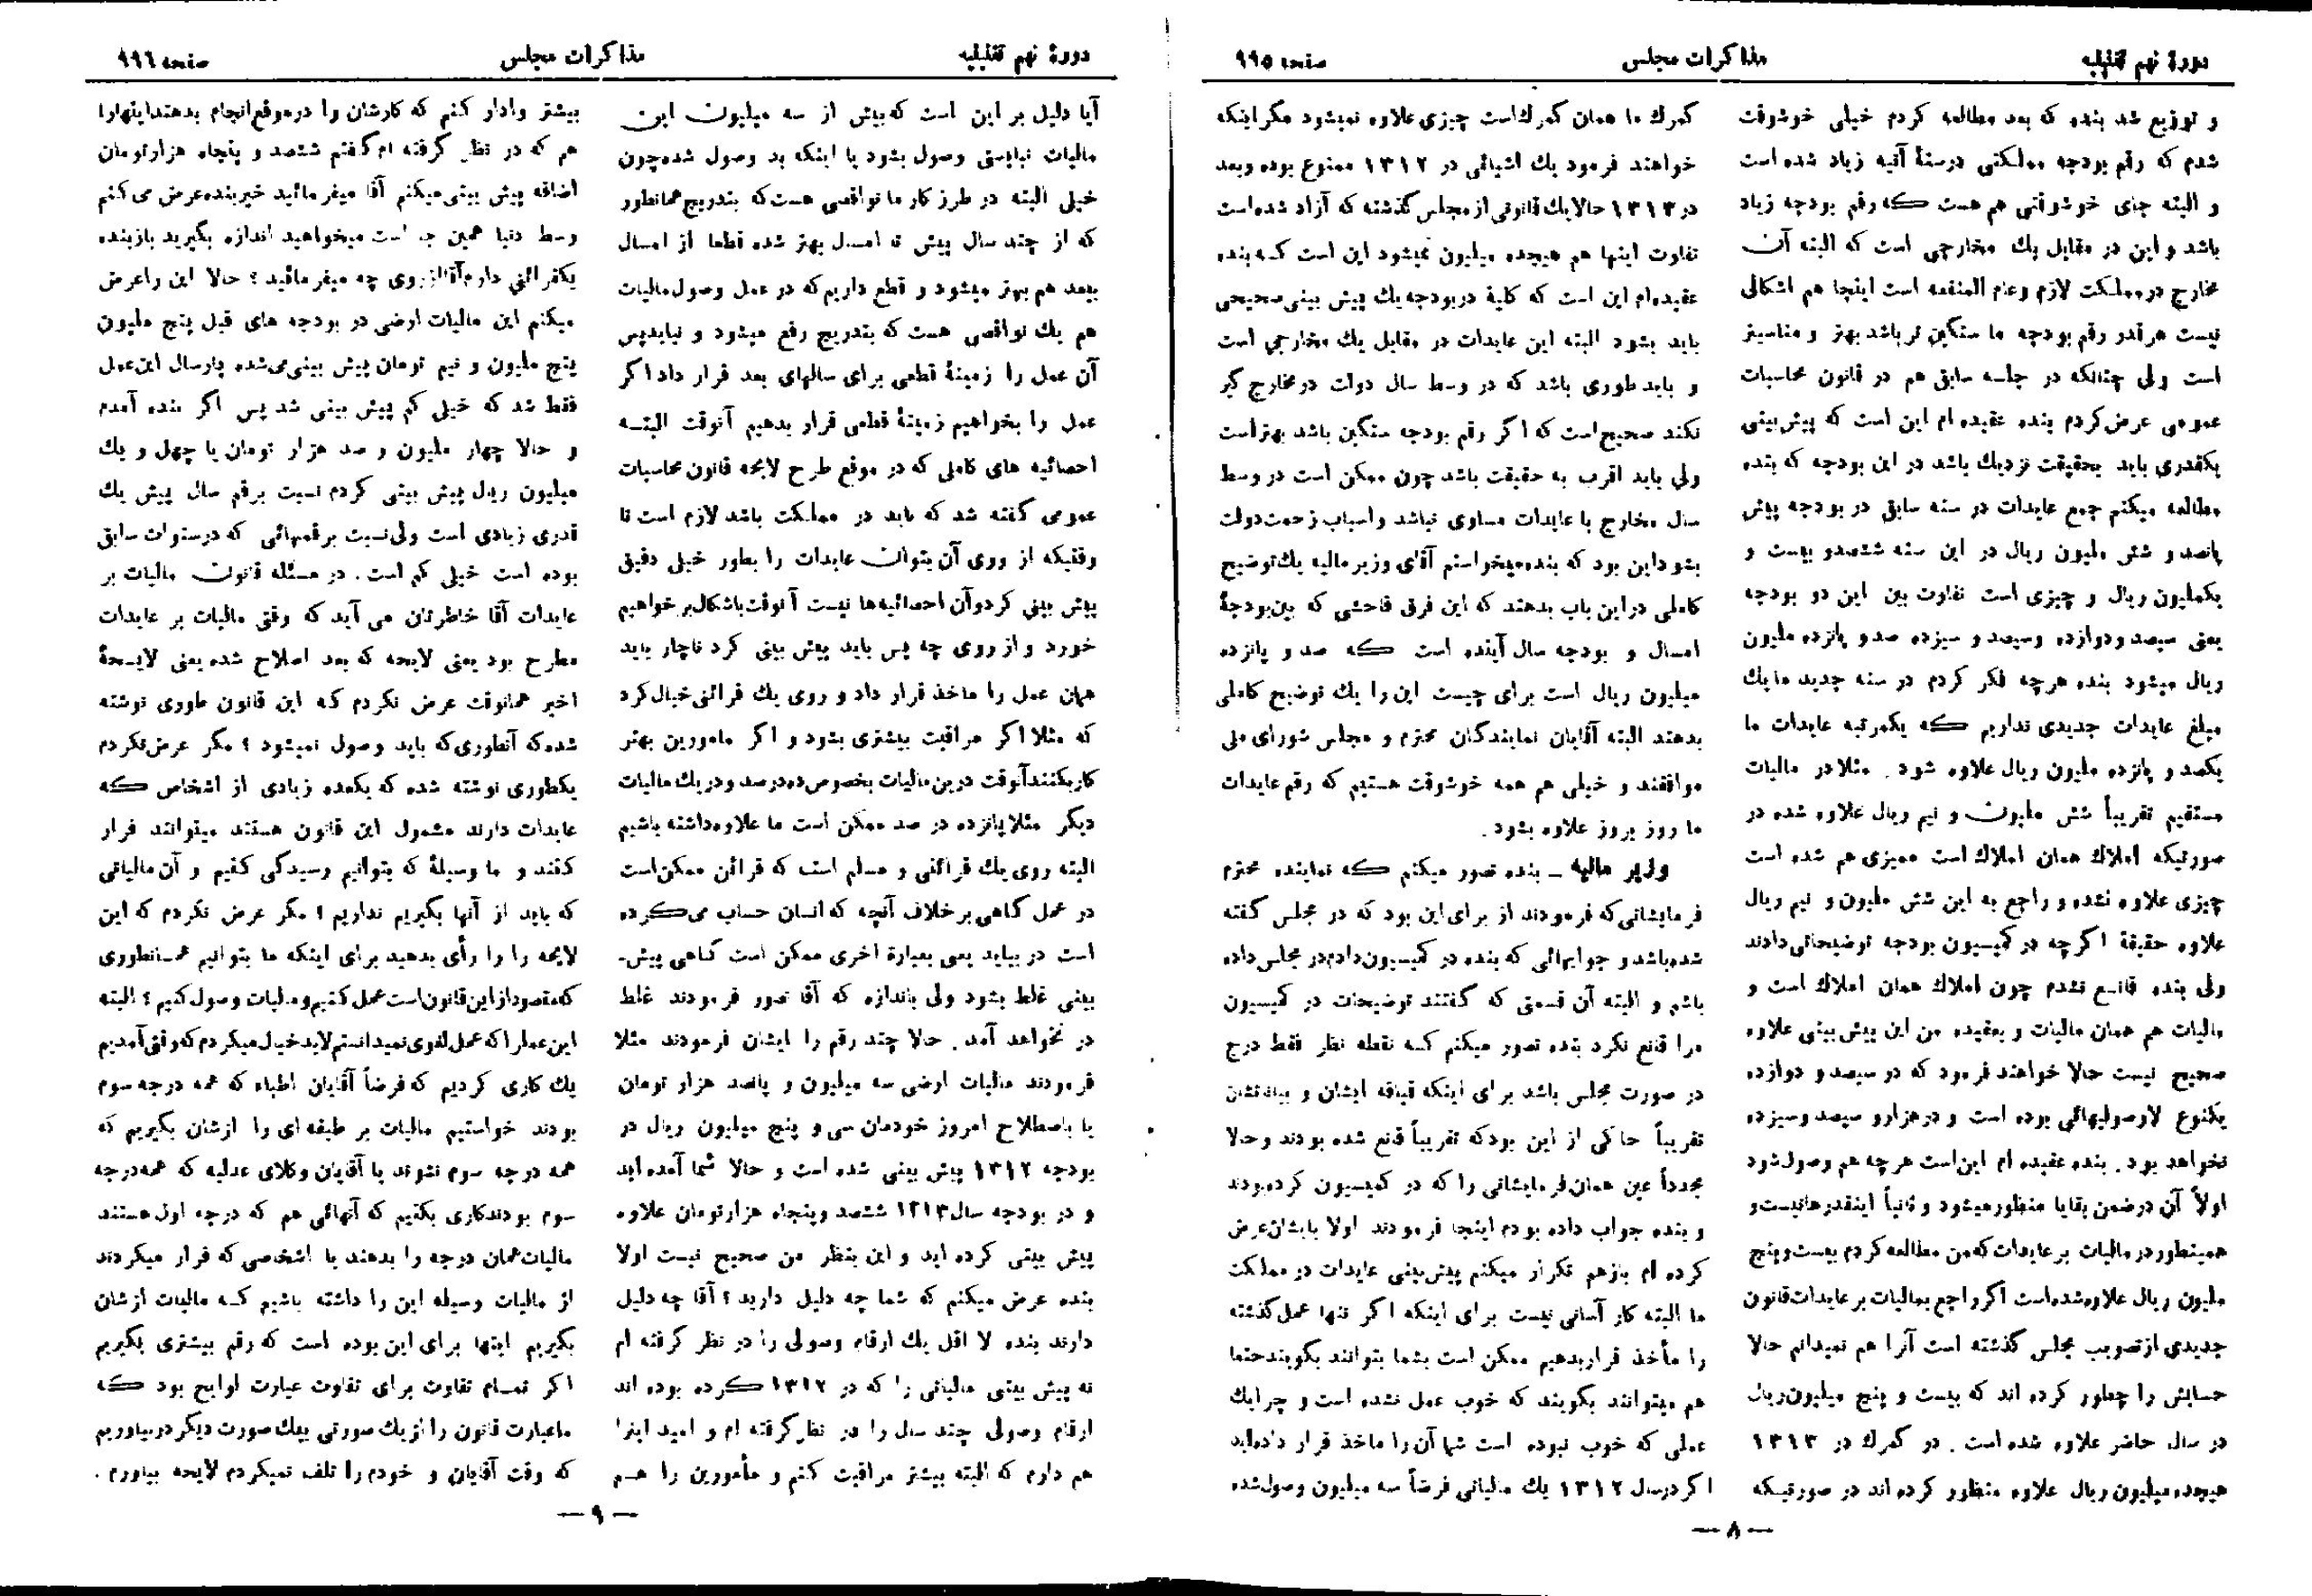 دورهٔ نهم تقنینیه
مذاکرات مجلس
صفحه ۹۹۵
و توزیع شد بنده که بعد مطالعه کردم خیلی خوشوقت
شدم که رقم بودجه مملکتی درسنهٔ آتیه زیاد شده است
و البته جای خوشوقتی هم هست که رقم بودجه زیاد
باشد و این در مقابل یك مخارجی است که البته آن
مخارج در مملکت لازم وعام المنفعه است اینجا هم اشکالی
نیست هر قدر رقم بودجه ما سنگین تر باشد بهتر و مناسبتر
است ولی چنانکه در جلسه سابق هم در قانون محاسبات
عمومی عرض کردم بنده عقیده ام این است که پیش بینی
یکقدری باید بحقیقت نزدیك باشد در این بودجه که بنده
مطالعه میکنم جمع عایدات در سنه سابق در بودجه پیش
پانصد و شش ملیون ریال در این سنه ششصدو بیست و
یکملیون ریال و چیزی است تفاوت بین این دو بودجه
یعنی سیصد ودوازده وسیصد و سیزده صدو پانزده ملیون
ریال میشود بنده هرچه فکر کردم در سنه جدید ما یك
مبلغ عایدات جدیدی نداریم که یکمرتبه عایدات ما
یکصد و پانزده ملیون ریال علاوه شود . مثلا در مالیات
مستقیم تقریباً شش ملیون و نیم ریال علاوه شده در
صورتیکه املاك همان املاك است ممیزی هم شده است
چیزی علاوه نشده و راجع به این شش ملیون و نیم ریال
علاوه حقیقة اگرچه در کمیسیون بودجه توضیحاتی دادند
ولی بنده قانع نشدم چون املاك همان املاك است و
مالیات هم همان مالیات و بعقیده من این پیش بینی علاوه
صحیح نیست حالا خواهند فرمود که در سیصد و دوازده
یکنوع لاوصولیهائی بوده است و درهزارو سیصد وسیزده
نخواهد بود . بنده عقیده ام این است هرچه هم وصول شود
اولاً آن درضمن بقایا منظور میشود و ثانیاً اینقدرها نیست و
همینطور در مالیات بر عایدات که من مطالعه کردم بیست و پنج
ملیون ریال علاوه شده است اگر راجع بمالیات بر عایدات قانون
جدیدی از تصویب مجلس گذشته است آنرا هم نمیدانم حالا
حسابش را چطور کرده اند که بیست و پنج میلیون ریال
در سال حاضر علاوه شده است . در گمرك در ۱۳۱۳
هیجده میلیون ریال علاوه منظور کرده اند در صورتیکه
گمرك ما همان گمرك است چیزی علاوه نمیشود مگر اینکه
خواهند فرمود یك اشیائی در ۱۳۱۲ ممنوع بوده وبعد
در ۱۳۱۳ حالا یك قانونی از مجلس گذشته که آزاد شده است
تفاوت اینها هم هیجده میلیون نمیشود این است که بنده
عقیده ام این است که کلیة در بودجه یك پیش بینی صحیحی
باید بشود البته این عایدات در مقابل یك مخارجی است
و باید طوری باشد که در وسط سال دولت در مخارج گیر
نکند صحیح است که اگر رقم بودجه سنگین باشد بهتر است
ولی باید اقرب به حقیقت باشد چون ممکن است در وسط
سال مخارج با عایدات مساوی نباشد و اسباب زحمت دولت
بشود این بود که بنده میخواستم آقای وزیر مالیه یك توضیح
کاملی در این باب بدهند که این فرق فاحشی که بین بودجهٔ
امسال و بودجه سال آینده است که صد و پانزده
میلیون ریال است برای چیست این را یك توضیح کاملی
بدهند البته آقایان نمایندگان محترم و مجلس شورای ملی
موافقند و خیلی هم همه خوشوقت هستیم که رقم عایدات
ما روز بروز علاوه بشود .
وزیر مالیه ـ بنده تصور میکنم که نماینده محترم
فرمایشاتی که فرمودند از برای این بود که در مجلس گفته
شده باشد و جوابهائی که بنده در کمیسیون دادم در مجلس داده
باشم و البته آن قسمتی که گفتند توضیحات در کمیسیون
مرا قانع نکرد بنده تصور میکنم که نقطه نظر فقط درج
در صورت مجلس باشد برای اینکه قیافه ایشان و بیاناتشان
تقریباً حاکی از این بود که تقریباً قانع شده بودند وحالا
مجدداً عین همان فرمایشاتی را که در کمیسیون کرده بودند
و بنده جواب داده بودم اینجا فرمودند اولا بایشان عرض
کرده ام باز هم تکرار میکنم پیش بینی عایدات در مملکت
ما البته کار آسانی نیست برای اینکه اگر تنها عمل گذشته
را مأخذ قرار بدهیم ممکن است بشما بتوانند بگویند حتما
هم میتوانند بگویند که خوب عمل نشده است و چرا یك
عملی که خوب نبوده است شما آن را ماخذ قرار داده اید
اگر درسال ۱۳۱۲ یك مالیاتی فرضاً سه میلیون وصول شده
— ۸ —
دورهٔ نهم تقنینیه
مذاکرات مجلس
صفحه ۹۹۶
آیا دلیل بر این است که بیش از سه میلیون این
مالیات نبایستی وصول بشود یا اینکه بد وصول شده چون
خیلی البته در طرز کار ما نواقصی هست که بتدریج همانطور
که از چند سال پیش تا امسال بهتر شده قطعا از امسال
ببعد هم بهتر میشود و قطع داریم که در عمل وصول مالیات
هم یك نواقصی هست که بتدریج رفع میشود و نباید پس
آن عمل را زمینهٔ قطعی برای سالهای بعد قرار داد اگر
عمل را بخواهیم زمینهٔ قطعی قرار بدهیم آنوقت البته
احصائیه های کاملی که در موقع طرح لایحه قانون محاسبات
عمومی گفته شد که باید در مملکت باشد لازم است تا
وقتیکه از روی آن بتوان عایدات را بطور خیلی دقیق
پیش بینی کرد و آن احصائیه ها نیست آنوقت باشکال بر خواهیم
خورد و از روی چه پس باید پیش بینی کرد ناچار باید
همان عمل را ماخذ قرار داد و روی یك قرائنی خیال کرد
که مثلا اگر مراقبت بیشتری بشود و اگر مامورین بهتر
کار بکنند آنوقت در این مالیات بخصوص ده درصد و در یك مالیات
دیگر مثلا پانزده در صد ممکن است ما علاوه داشته باشیم
البته روی یك قرائنی و مسلم است که قرائن ممکن است
در عمل گاهی بر خلاف آنچه که انسان حساب می کرده
است در بیاید یعنی بعبارة اخری ممکن است گاهی پیش-
بینی غلط بشود ولی باندازه که آقا تصور فرمودند غلط
در نخواهد آمد . حالا چند رقم را ایشان فرمودند مثلا
فرمودند مالیات ارضی سه میلیون و پانصد هزار تومان
یا باصطلاح امروز خودمان سی و پنج میلیون ریال در
بودجه ۱۳۱۲ پیش بینی شده است و حالا شما آمده اید
و در بودجه سال ۱۳۱۳ ششصد وپنجاه هزار تومان علاوه
پیش بینی کرده اید و این بنظر من صحیح نیست اولا
بنده عرض میکنم که شما چه دلیل دارید ؟ آقا چه دلیل
دارند بنده لا اقل یك ارقام وصولی را در نظر گرفته ام
نه پیش بینی مالیاتی را که در ۱۳۱۲ کرده بوده اند
ارقام وصولی چند سال را در نظر گرفته ام و امید اینرا
هم دارم که البته بیشتر مراقبت کنم و مأمورین را هم
بیشتر وادار کنم که کارشان را در موقع انجام بدهند اینها را
هم که در نظر گرفته ام گفتم ششصد و پنجاه هزار تومان
اضافه پیش بینی میکنم آقا میفرمائید خیر بنده عرض می کنم
وسط دنیا همین جا است میخواهید اندازه بگیرید باز بنده
یك قرائنی دارم آقا از روی چه میفرمائید ؟ حالا این را عرض
میکنم این مالیات ارضی در بودجه های قبل پنج ملیون
پنج ملیون و نیم تومان پیش بینی می شده پارسال این عمل
فقط شد که خیلی کم پیش بینی شد پس اگر بنده آمدم
و حالا چهار ملیون و صد هزار تومان یا چهل و یك
میلیون ریال پیش بینی کردم نسبت برقم سال پیش یك
قدری زیادی است ولی نسبت برقمهائی که در سنوات سابق
بوده است خیلی کم است . در مسئله قانون مالیات بر
عایدات آقا خاطرتان می آید که وقتی مالیات بر عایدات
مطرح بود یعنی لایحه که بعد اصلاح شده یعنی لایحهٔ
اخیر همانوقت عرض نکردم که این قانون طوری نوشته
شده که آنطوری که باید وصول نمیشود ؟ مگر عرض نکردم
یکطوری نوشته شده که یکعده زیادی از اشخاص که
عایدات دارند مشمول این قانون هستند میتوانند فرار
کنند و ما وسیلهٔ که بتوانیم رسیدگی کنیم و آن مالیاتی
که باید از آنها بگیریم نداریم ؟ مگر عرض نکردم که این
لایحه را را رأی بدهید برای اینکه ما بتوانیم همانطوری
که مقصود از این قانون است عمل کنیم و مالیات وصول کنیم ؟ البته
این عمل را که عمل لغوی نمیدانستم لابد خیال میکردم که وقتی آمدیم
یك کاری کردیم که فرضاً آقایان اطباء که همه درجه سوم
بودند خواستیم مالیات بر طبقه ای را ازشان بگیریم که
همه درجه سوم نشوند یا آقایان وکلای عدلیه که همه درجه
سوم بودند کاری بکنیم که آنهائی هم که درجه اول هستند
مالیات همان درجه را بدهند یا اشخاصی که فرار میکردند
از مالیات وسیله این را داشته باشیم که مالیات ازشان
بگیریم اینها برای این بوده است که رقم بیشتری بگیریم
اگر تمام تفاوت برای تفاوت عبارت لوایح بود که
ما عبارت قانون را از یك صورتی بیك صورت دیگر در بیاوریم
که وقت آقایان و خودم را تلف نمیکردم لایحه بیاورم .
— ۹ —